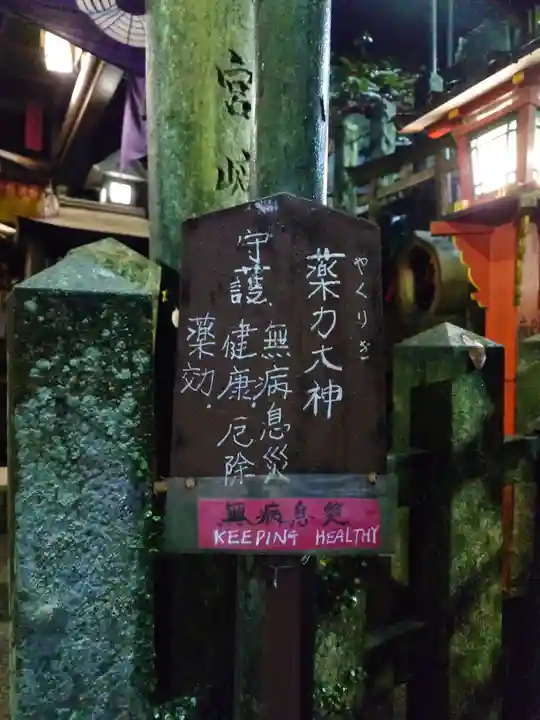 宮崎
薬力大神
やくりき
無病息災
守護、健康、厄除
薬効、
無病息災
KEEPING HEALTHY